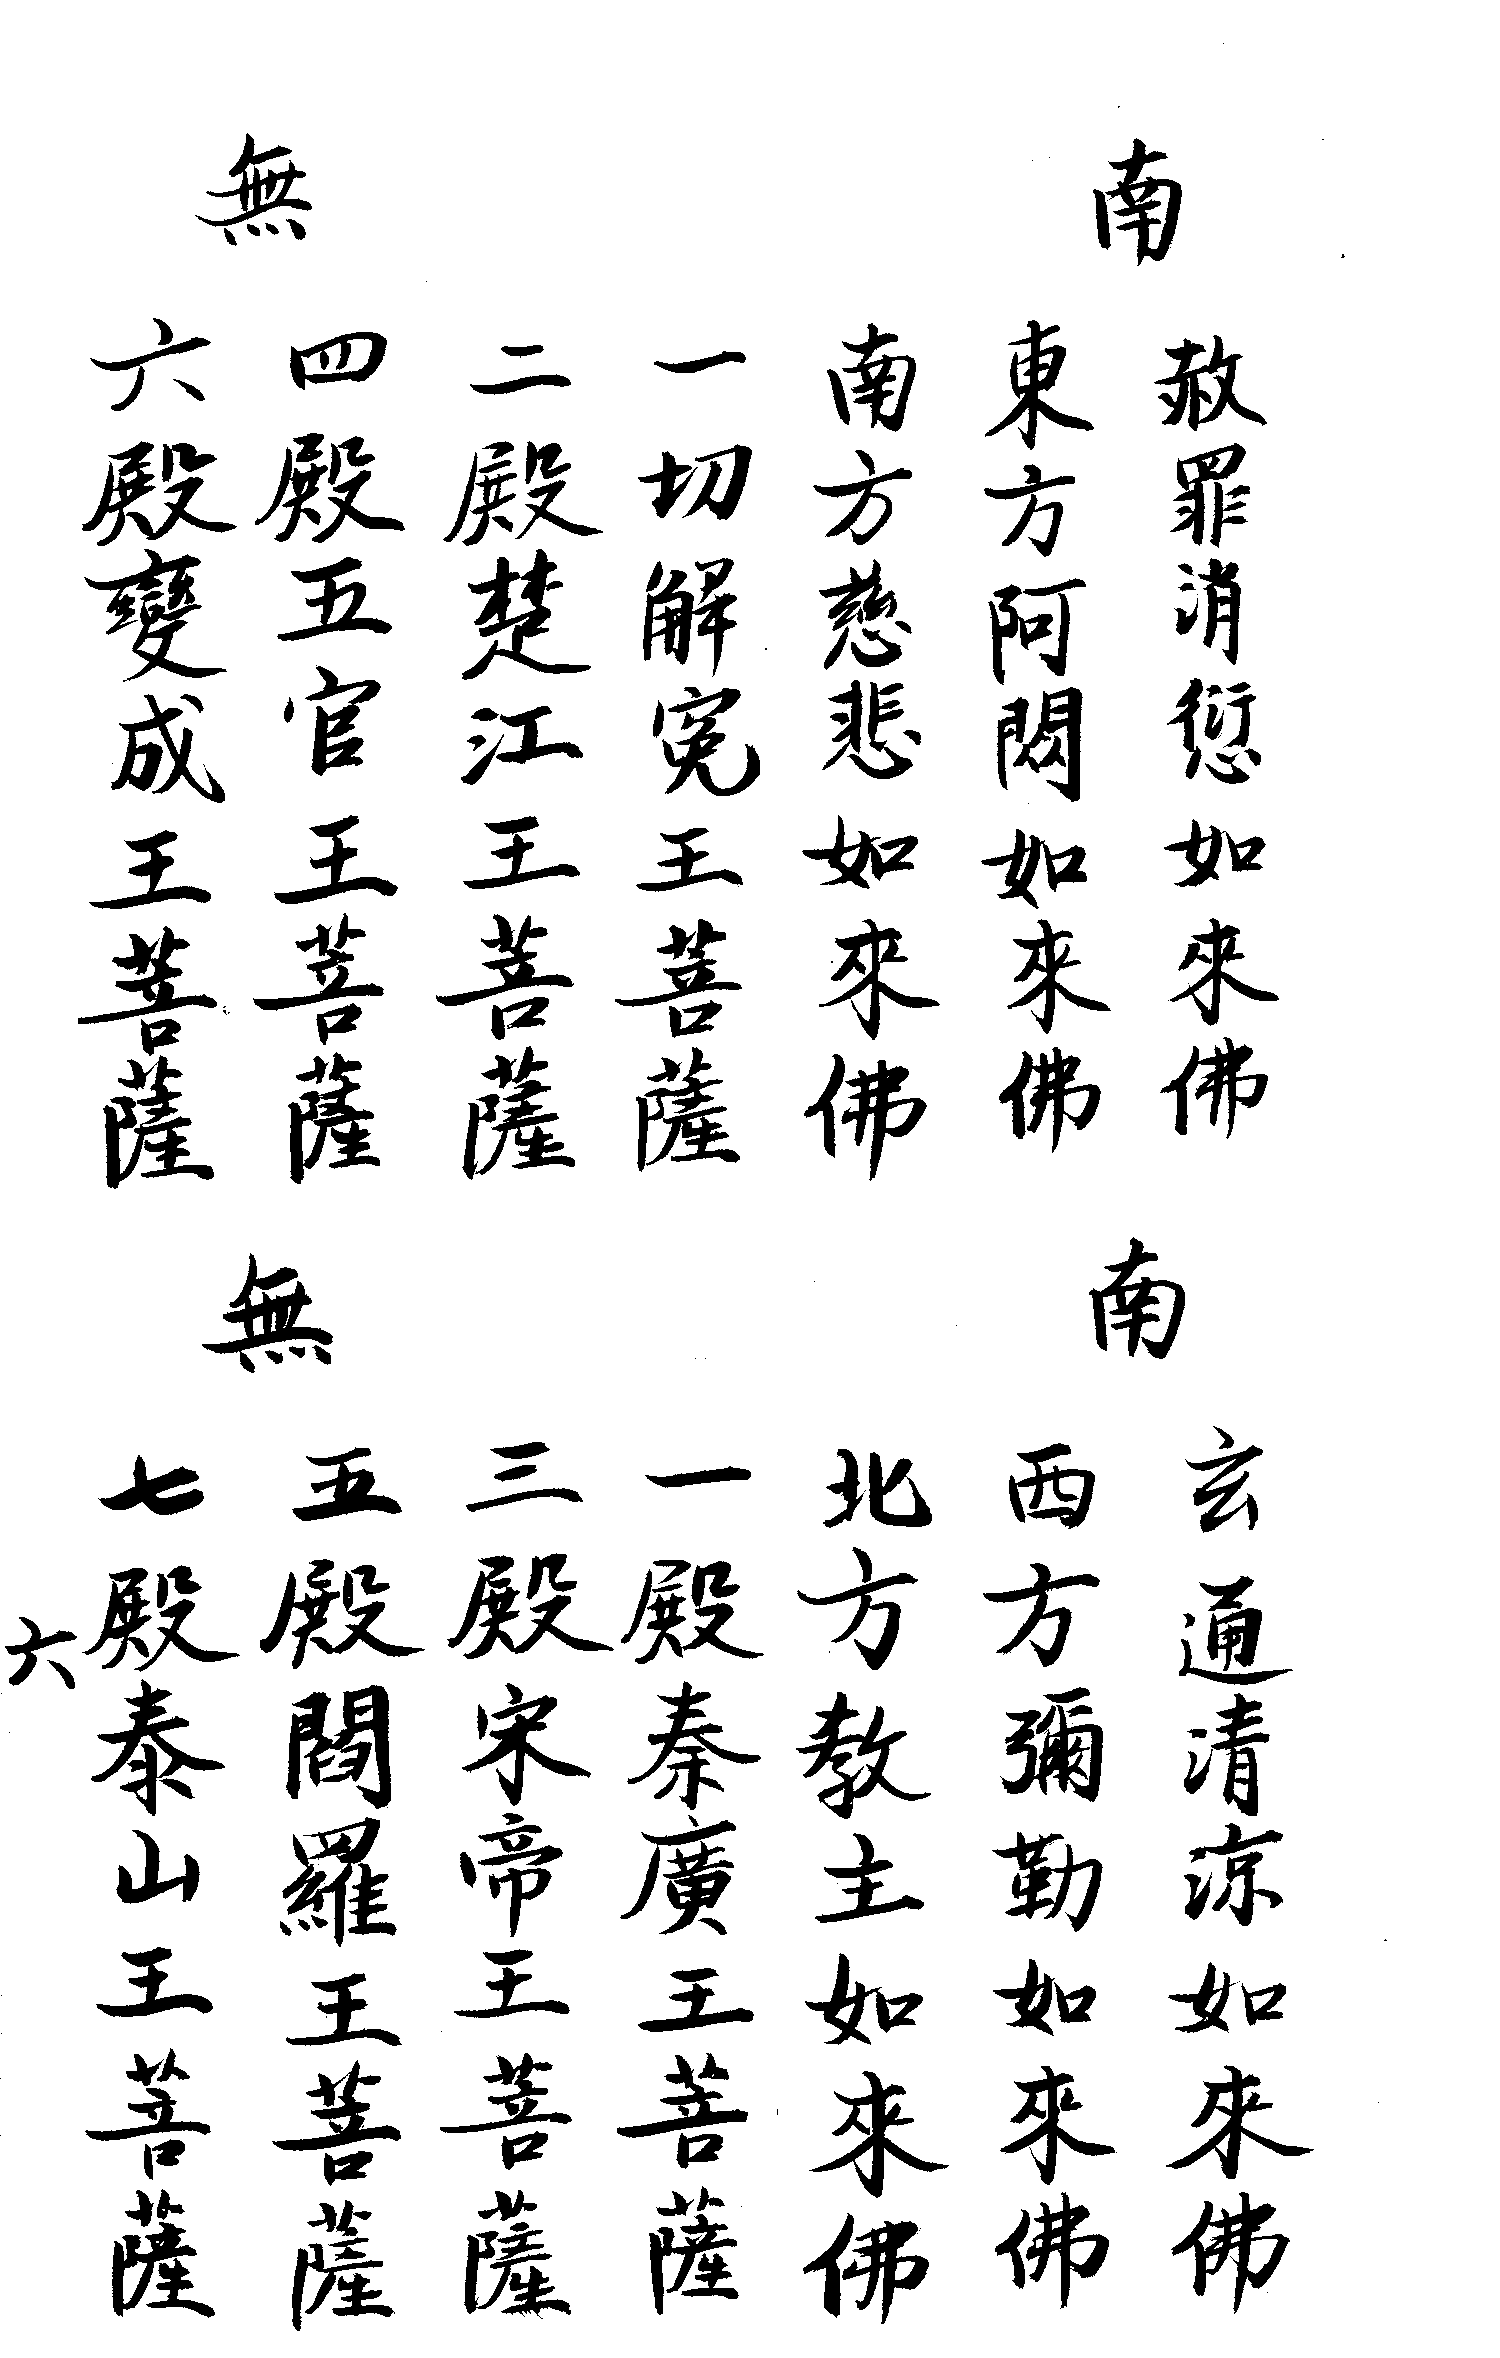 南 無
赦罪消愆如來佛
東方阿閦如來佛
南方慈悲如來佛
一切解冤王菩薩
二殿楚江王菩薩
四殿五官王菩薩
六殿變成王菩薩
南 無
玄通清涼如來佛
西方彌勒如來佛
北方教主如來佛
一殿秦廣王菩薩
三殿宋帝王菩薩
五殿閻羅王菩薩
七殿泰山王菩薩
六